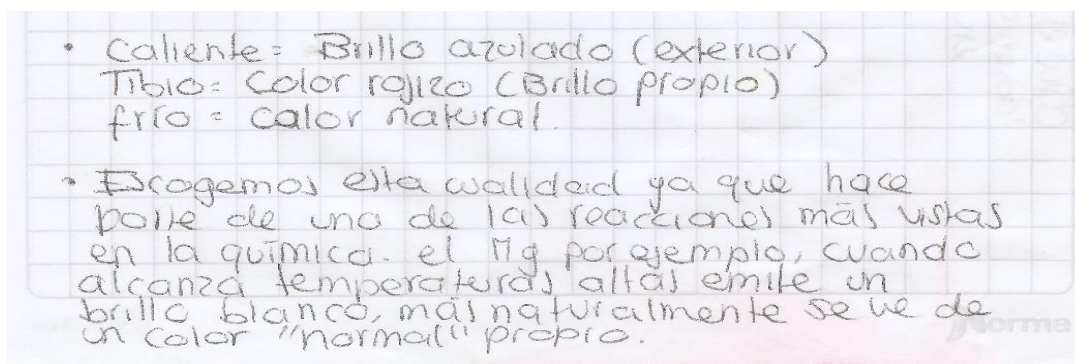 • Caliente = Brillo azulado (exterior)
Tibio = Color rojizo (Brillo propio)
frío = calor natural.
• Escogemos esta cualidad ya que hace
parte de una de las reacciones más vistas
en la química. el Mg por ejemplo, cuando
alcanza temperaturas altas emite un
brillo blanco, más naturalmente se ve de
un color "normal" propio.
Norma